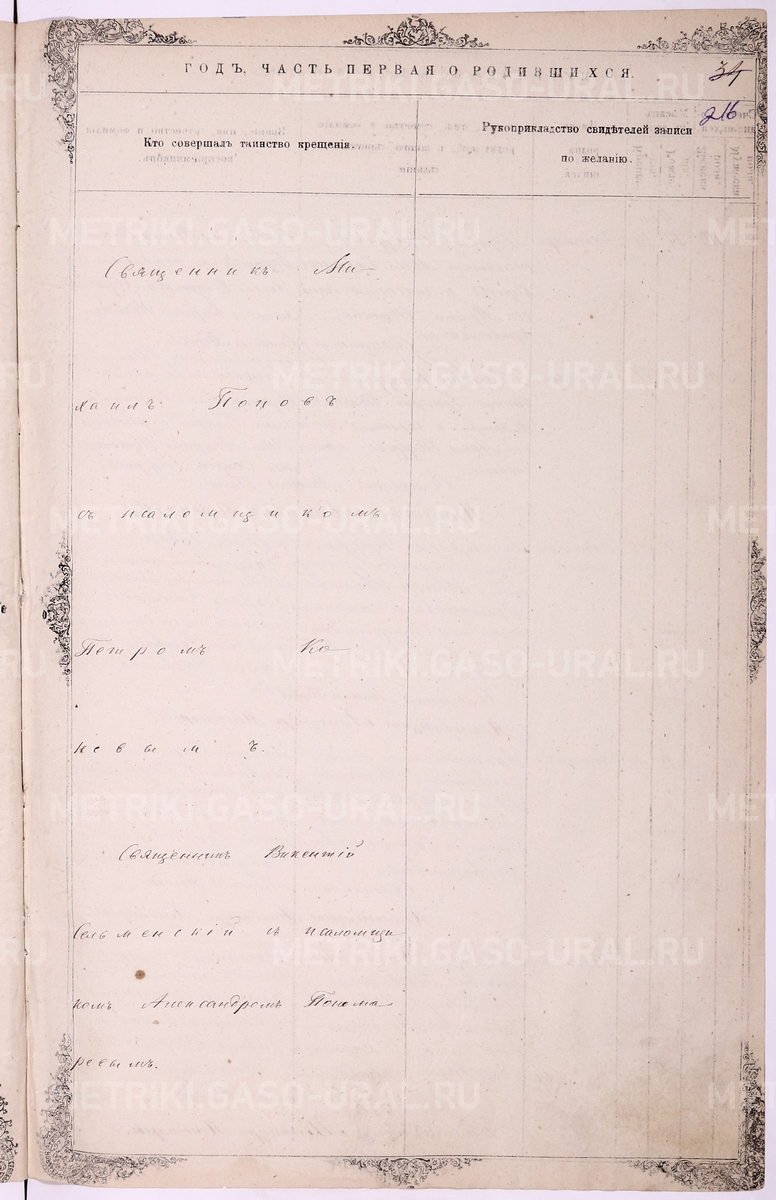 ГОДЪ, ЧАСТЬ ПЕРВАЯ О РОДИВШИХСЯ.
34
216
Кто совершалъ таинство крещенія.
Рукоприкладство свидѣтелей записи
по желанію.
Священникъ Ми-
хаилъ Поповъ
съ псаломщикомъ
Петромъ Ко-
новымъ.
Священникъ Викентій
Сельменскій съ псаломщи-
комъ Александромъ Понома-
ревымъ.
METRIKI.GASO-URAL.RU